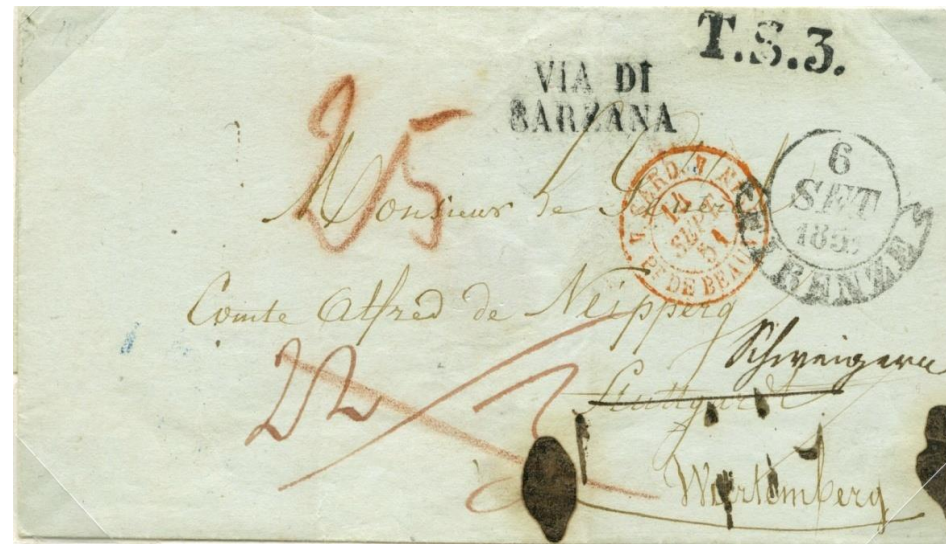 T.S.3.
VIA DI
SARZANA
25
6
SET
185
FIRENZE
SARD.
14
SEPT
51
PT DE BEAUV
Monsieur le
Comte Alfred de Neipperg
Schweigern
22
Stuttgardt
à
Würtemberg